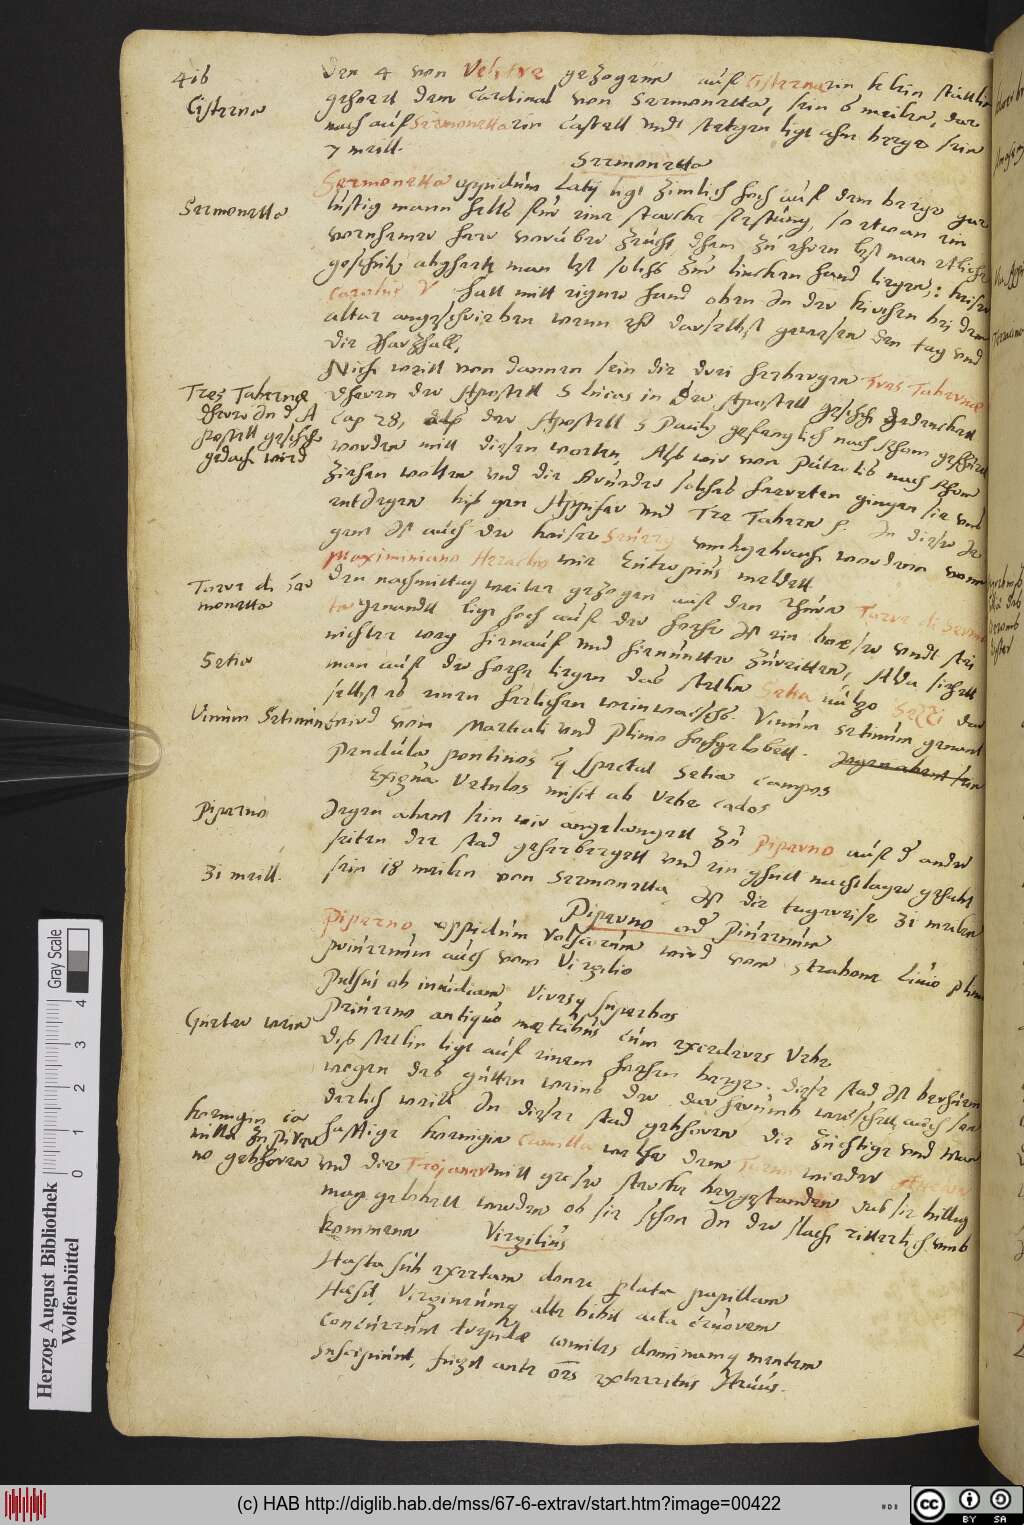 416
Cisterna
den 4 von Veletre gezogenn auf Cisterna ein klein stettlin
gehoert dem Cardinal von Sermonetta, sein 6 meilen, dar
nach auf Sermonetta ein Castell vndt stetgen ligt ahm berge sein
7 meill.
Sermonetta
Sermonetta
Sermonetta oppidum Latij ligt zimlich hoch auf dem berge gar
lustig mann helts fur eine starcke festung, so etwan ein
vornehmer herr voruber zeucht dhem zu ehren lest man etliche
geschutz abgehen man lest solchs zur lincken hand liegen; keiser
Carolus V hatt mitt eigner hand oben in der kirchen bei dem
altar angeschrieben wenn ehr daselbst gewesen den tag vnd
die
Nicht weitt von dannen sein die drei herbergen Tres Tabernae
Tres Tabernae
dheren in d A
postell geschich
gedacht wird
dheren der Apostell S Lucas in der Apostell geschich gedencket
cap 28, als der Apostell S Pauly gefenglich nach Rhom gefhuret
worden mitt diesen worten, Als wir von Puteolis nach Rhom
ziehen wolten vnd die Bruder solches hoereten gingen sie vns
entdegen bis gen Appifor vnd Tre Tabern p. In dieser
ist auch der keiser Seuery vmbgebracht worden vom
Maximiniano Herculeo wie Eutropius meldett
Torre di Ser
monetta
den nachmittag weiter gezogen auf den thurn Torre di Sermo
ta genandt ligt hoch auf der hoehe ist ein boeser vndt stei
nichter weg hienauf vnd hienunter zureitten, Alda siehett
Setia
man auf der hoehe liegen das stetlin Setia itzo Sezzi da
selbst ab einen herlichen wein wechsß. Vinum Setinum genant
Vinum Setinum
wird von Martiali vnd Plinio hochgelobett. Jegen abent sein
Pendula pontinos q spectat Setia campos
Exigua Vetulos misit ab Vrbe cados
Piperno
Jegen abent sein wir angelanget zu Piperno auf d ander
seiten der stad geherbergett vnd ein guett nachtlager gehabt
31 meill.
sein 18 meilen von Sermonetta. Ist die tagereise 31 meilen
Piperno od Piuernum
Piperno oppidum Volscorum wird vom Strabone Liuio Plinio
priuernum auch vom Virgilio
Pulsus ob inuidiam viresq superbas
Priuerno antiquo metabus cum excederet Vrbe
Gutter wein
Diß stetlin ligt auf einem hohen berge. diese stad ist berhumt
wegen des gutten weins der darherumb wechsett, auch son
derlich weill in dieser stad gebhoren die zuchtige vnd stan
koenigin Ca
milla zu Piper
no gebhoren
hafftige koenigin Camilla welche dem Turno wieder
vnd die Trojaner mitt großer stercke beygestanden das sie billig
mag gelobett werden ob sie schon in der slacht ritterlich vmb
kommenn Virgilius
Hasta sub exertam donec perlata papillam
Hesit, Virgineumq alte bibit acta cruorem
Concurrunt trepidae comites dominamq ruentem
Suscipiunt, fugit ante oes exterritus Aruns.
Herzog August Bibliothek
Wolfenbüttel
Gray Scale
0 1 2 3 4
(c) HAB http://diglib.hab.de/mss/67-6-extrav/start.htm?image=00422
BY SA